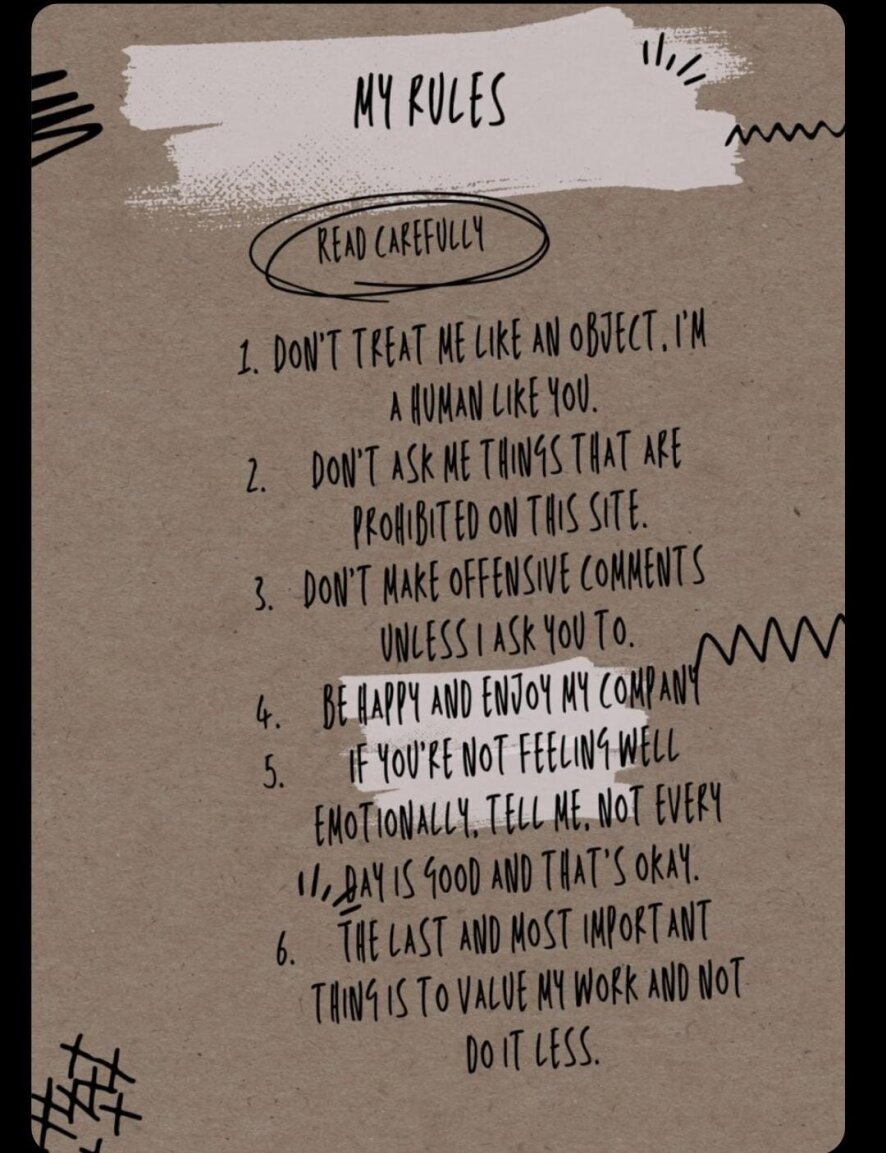 MY RULES
READ CAREFULLY
1. DON'T TREAT ME LIKE AN OBJECT, I'M
A HUMAN LIKE YOU.
2. DON'T ASK ME THINGS THAT ARE
PROHIBITED ON THIS SITE.
3. DON'T MAKE OFFENSIVE COMMENTS
UNLESS I ASK YOU TO.
4. BE HAPPY AND ENJOY MY COMPANY
5. IF YOU'RE NOT FEELING WELL
EMOTIONALLY, TELL ME, NOT EVERY
DAY IS GOOD AND THAT'S OKAY.
6. THE LAST AND MOST IMPORTANT
THING IS TO VALUE MY WORK AND NOT
DO IT LESS.